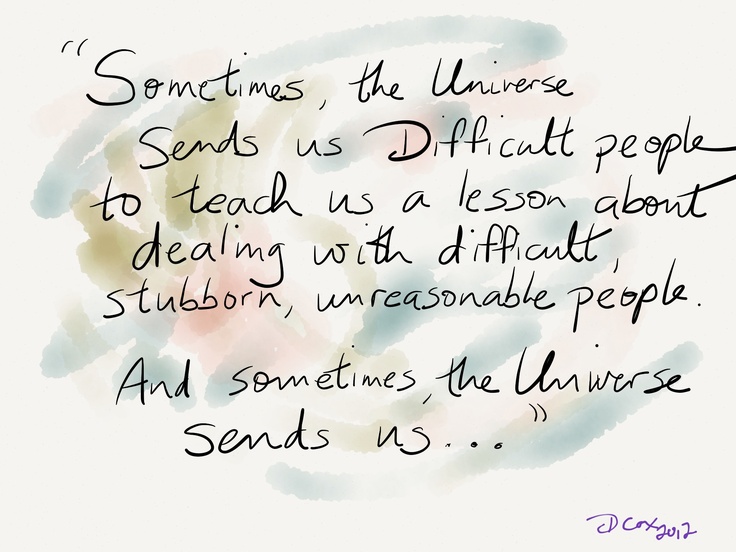 "Sometimes, the Universe
Sends us Difficult people
to teach us a lesson about
dealing with difficult,
stubborn, unreasonable people.
And sometimes, the Universe
sends us..."
D Cox 2012